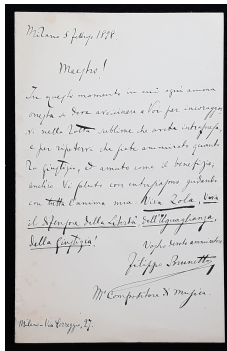 Milano 5 Febb 1898
Maestro!
In questo momento in cui ogni anima
onesta si deve avvicinare a Voi per incoraggiar
vi nella lotta sublime che avete intrapresa,
e per ripetervi che siete ammirato quanto
la giustizia, ed amato come il benefizio,
anch'io Vi saluto con entusiasmo gridando
con tutta l'anima mia: Viva Zola, Viva
il difensore della Libertà dell'Uguaglianza,
della Giustizia!
Vostro ammiratore
Filippo Brunetto
M° Compositore di Musica
Milano - Via Correggio, 27.